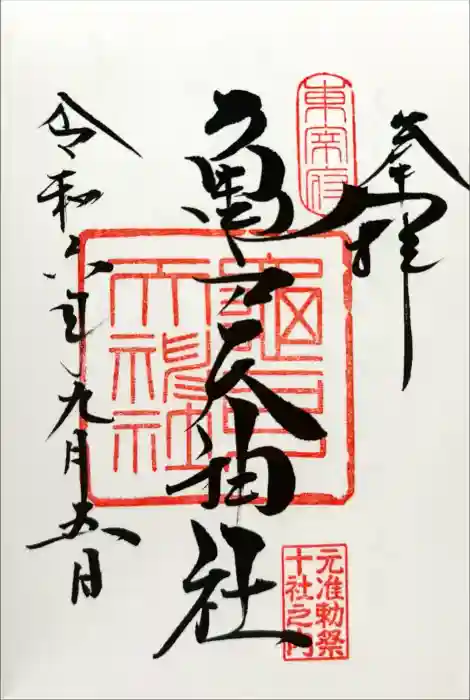 奉拝
東宰府
亀戸天神社
亀戸天神社
元准勅祭
十社之内
令和六年九月五日